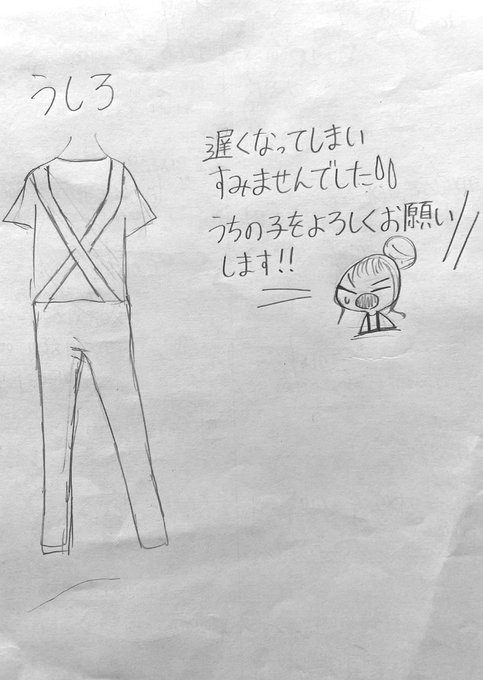 うしろ
遅くなってしまい
すみませんでした
うちの子をよろしくお願い
します!!